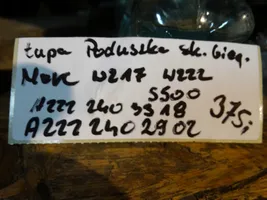 Łapa Poduszka sk. bieg.
Merc W217 W222
S500
A222 240 35 18 375,-
A222 240 29 02